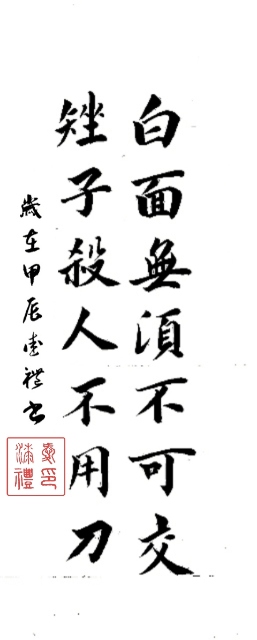 白面無須不可交
矬子殺人不用刀
歲在甲辰 禮書